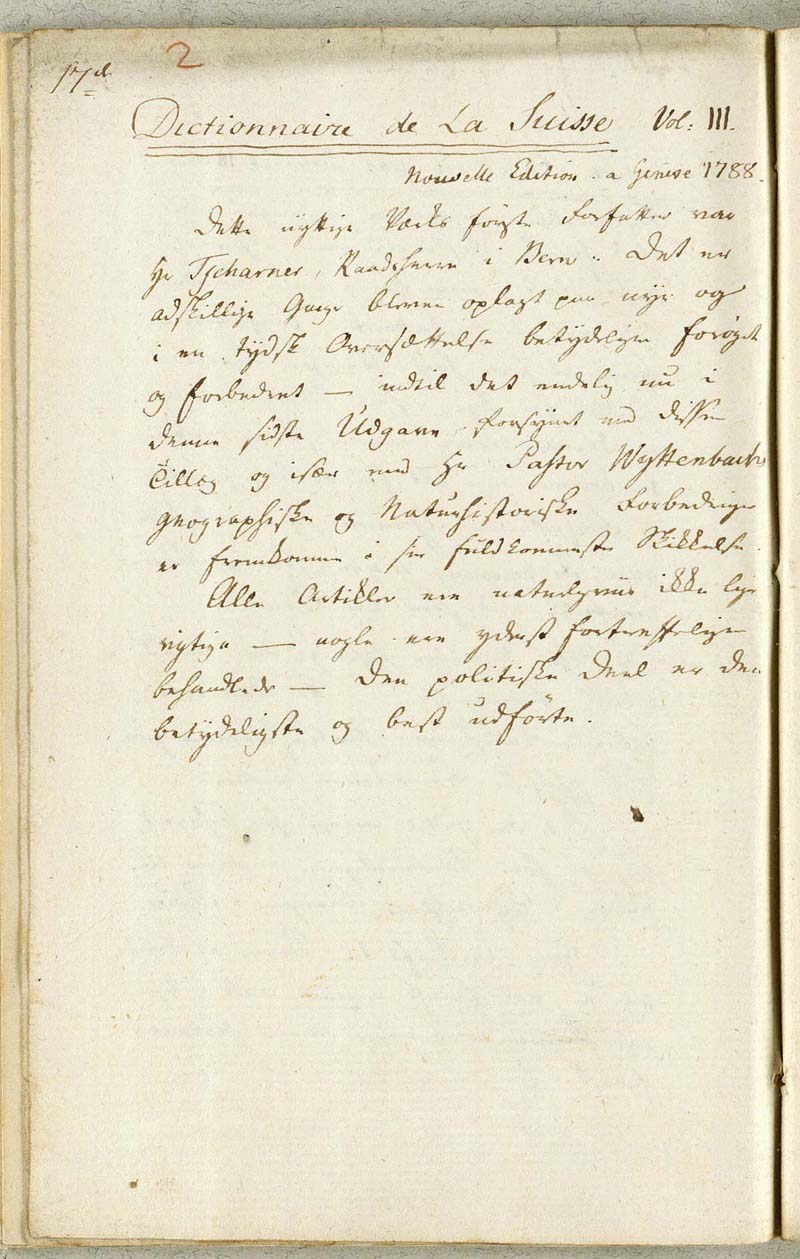 2
17de
Dictionnaire de La Suisse Vol: III.
Nouvelle Edition. a Geneve 1788.
Dette nyttige Værks første Forfatter var
Hr Tscharner, Raadsherre i Bern. Det er
adskillige Gange bleven oplagt paa nye og
i en tydsk Oversættelse betydeligen forøget
og forbedret — indtil det endelig nu i
denne sidste Udgave forsynet med disse
Tillæg og især med Hr Pastor Wyttenbachs
geographiske og Naturhistoriske Forbedringer
er fremkommen i sin fuldkomneste Skikkelse.
Alle Artikler ere naturligviis ikke lige
vigtige — nogle ere yderst fortreffeligen
behandlede — Den politiske Deel er den
betydeligste og best udførte.